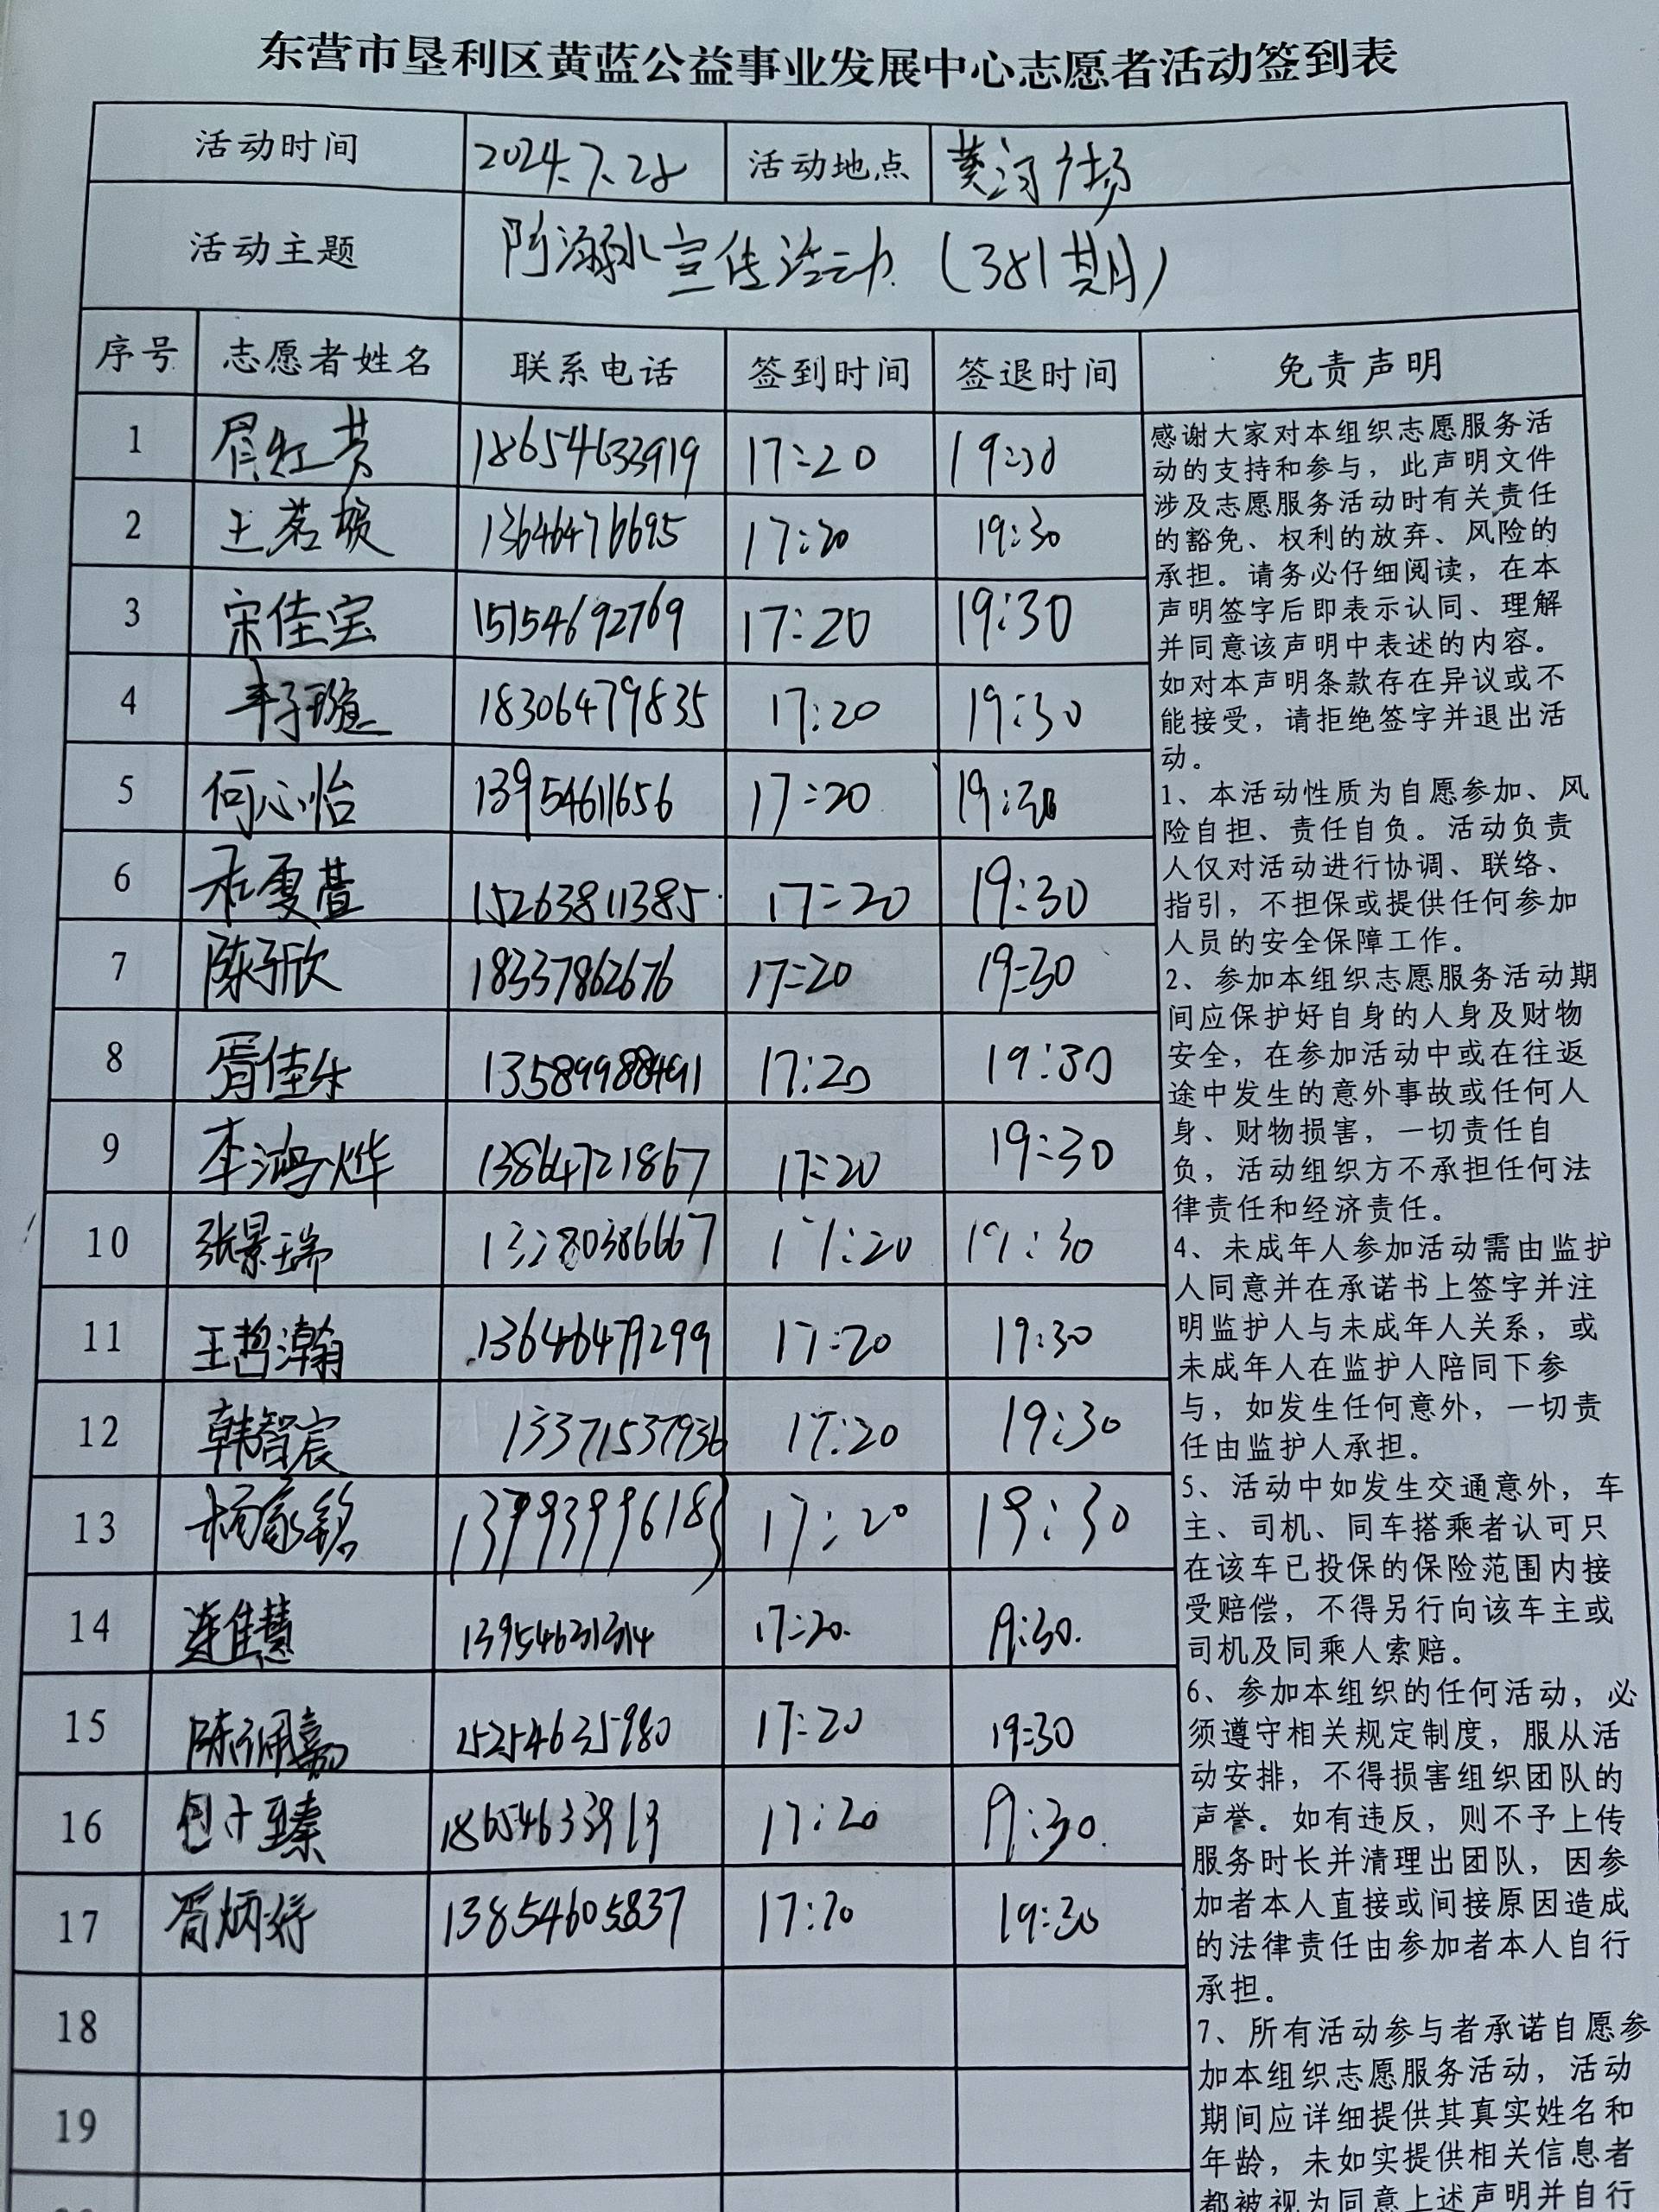 东营市垦利区黄蓝公益事业发展中心志愿者活动签到表
活动时间 2024.7.28 活动地点 黄河广场
活动主题 防溺水宣传活动（381期）
序号 志愿者姓名 联系电话 签到时间 签退时间 免责声明
1 胥红芳 18654633919 17:20 19:30
2 王茗嫒 13646476695 17:20 19:30
3 宋佳宝 15154692769 17:20 19:30
4 子璇 18306479835 17:20 19:30
5 何心怡 13954611656 17:20 19:30
6 雯萱 15263811385 17:20 19:30
7 陈子欣 18337862676 17:20 19:30
8 胥佳乐 13589988491 17:20 19:30
9 李鸿烨 13864721867 17:20 19:30
10 张景瑞 13280386667 17:20 19:30
11 王哲瀚 13646479299 17:20 19:30
12 韩智宸 13371537936 17:20 19:30
13 杨家铭 13793996183 17:20 19:30
14 连佳慧 13954631314 17:20. 19:30.
15 陈佩嘉 15254635980 17:20 19:30
16 臻 18654633919 17:20 19:30.
17 胥炳妤 13854605837 17:20 19:30
18
19
感谢大家对本组织志愿服务活
动的支持和参与，此声明文件
涉及志愿服务活动时有关责任
的豁免、权利的放弃、风险的
承担。请务必仔细阅读，在本
声明签字后即表示认同、理解
并同意该声明中表述的内容。
如对本声明条款存在异议或不
能接受，请拒绝签字并退出活
动。
1、本活动性质为自愿参加、风
险自担、责任自负。活动负责
人仅对活动进行协调、联络、
指引，不担保或提供任何参加
人员的安全保障工作。
2、参加本组织志愿服务活动期
间应保护好自身的人身及财物
安全，在参加活动中或在往返
途中发生的意外事故或任何人
身、财物损害，一切责任自
负，活动组织方不承担任何法
律责任和经济责任。
4、未成年人参加活动需由监护
人同意并在承诺书上签字并注
明监护人与未成年人关系，或
未成年人在监护人陪同下参
与，如发生任何意外，一切责
任由监护人承担。
5、活动中如发生交通意外，车
主、司机、同车搭乘者认可只
在该车已投保的保险范围内接
受赔偿，不得另行向该车主或
司机及同乘人索赔。
6、参加本组织的任何活动，必
须遵守相关规定制度，服从活
动安排，不得损害组织团队的
声誉。如有违反，则不予上传
服务时长并清理出团队，因参
加者本人直接或间接原因造成
的法律责任由参加者本人自行
承担。
7、所有活动参与者承诺自愿参
加本组织志愿服务活动，活动
期间应详细提供其真实姓名和
年龄，未如实提供相关信息者
都被视为同意上述声明并自行